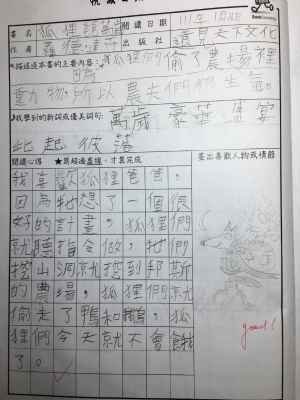 書名 狐狸爸爸 閱讀日期 111年1月
作者 羅德・達爾 出版社 遠見天下文化
描述這本書的主要內容: 狐狸爸爸偷了農場裡
動物,所以農夫們都生氣。
我學到的新詞或優美詞句: 萬歲 豪華 盛宴
此起彼落
閱讀心得 ★剪超過虛線,才算完成
畫出喜歡人物或情節
我喜歡狐狸爸爸,
因為牠想了一個很
好的計畫,狐狸們
就聽指令做,牠們
挖山洞就挖到邦斯
的農場,狐狸們就
偷走了鴨和鵝,狐
狸們今天就不會餓
了。
good!